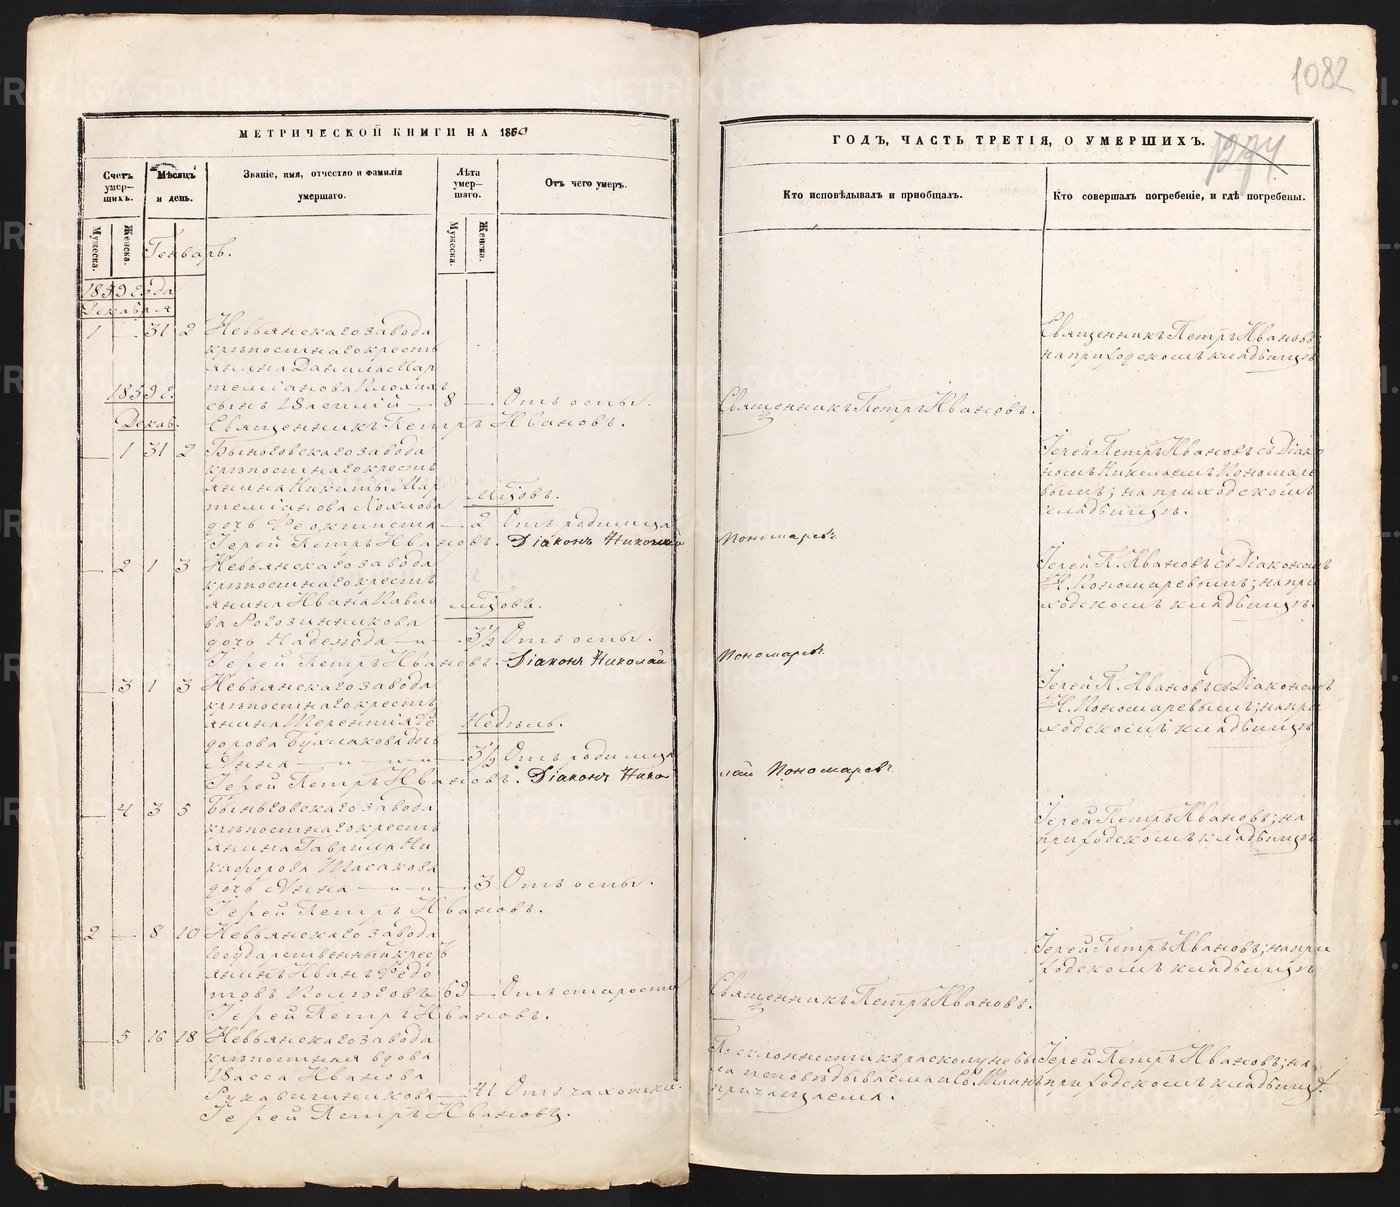 1082
МЕТРИЧЕСКОЙ КНИГИ НА 1860
ГОДЪ, ЧАСТЬ ТРЕТІЯ, О УМЕРШИХЪ.
1274
Счетъ умер-
шихъ.
Мѣсяцъ
и день.
Званіе, имя, отчество и фамилія
умершаго.
Лѣта
умер-
шаго.
Отъ чего умеръ.
Кто исповѣдывалъ и пріобщалъ.
Кто совершалъ погребеніе, и гдѣ погребены.
Мужеска.
Женска.
Мужеска.
Женска.
Генварь.
1859 года
Декабря
1 31 2 Невьянскаго завода
крѣпостнаго кресть
янина Данила Мар
теміанова
сынъ Василій 8 Отъ оспы.
Священникъ Петръ Ивановъ.
Священникъ Петръ Ивановъ.
Священникъ Петръ Ивановъ
на приходскомъ кладбищѣ
1859 г.
Декаб.
1 31 2 Быньговскаго завода
крѣпостнаго кресть
янина Никиты Мар
теміанова
дочь Феоктиста 2 Отъ родимца
м҃цовъ.
Іерей Петръ Ивановъ. Діаконъ Николай
Пономаревъ
Іерей Петръ Ивановъ съ Діако
номъ Николаемъ Пономаре
вымъ; на приходскомъ
кладбищѣ.
2 1 3 Невьянскаго завода
крѣпостнаго кресть
янина Ивана Павло
ва Рогозинникова
дочь Надежда 3½ Отъ оспы.
м҃цовъ.
Іерей Петръ Ивановъ. Діаконъ Николай
Пономаревъ
Іерей П. Ивановъ съ Діакономъ
Н. Пономаревымъ; на при
ходскомъ кладбищѣ.
3 1 3 Невьянскаго завода
крѣпостнаго кресть
янина Терентія Ѳе
дорова дочь
Анна 3½ Отъ родимца
Недѣль.
Іерей Петръ Ивановъ. Діаконъ Нико
лай Пономаревъ
Іерей П. Ивановъ съ Діакономъ
Н. Пономаревымъ; на при
ходскомъ кладбищѣ
4 3 5 Быньговскаго завода
крѣпостнаго кресть
янина Гаврила Ни
кифорова
дочь Анна 3 Отъ оспы.
Іерей Петръ Ивановъ.
Іерей Петръ Ивановъ; на
приходскомъ кладбищѣ
2 8 10 Невьянскаго завода
государственный крест
янинъ Иванъ Ѳедо
товъ 69 Отъ старости
Іерей Петръ Ивановъ.
Священникъ Петръ Ивановъ.
Іерей Петръ Ивановъ; на при
ходскомъ кладбищѣ
5 16 18 Невьянскаго завода
крѣпостная вдова
Васса Иванова
Рукавишникова 41 Отъ чахотки.
Іерей Петръ Ивановъ.
По склонности къ расколу не бы
ла исповѣдываема и Св. Таинъ
причащаема.
Іерей Петръ Ивановъ; на
приходскомъ кладбищѣ.